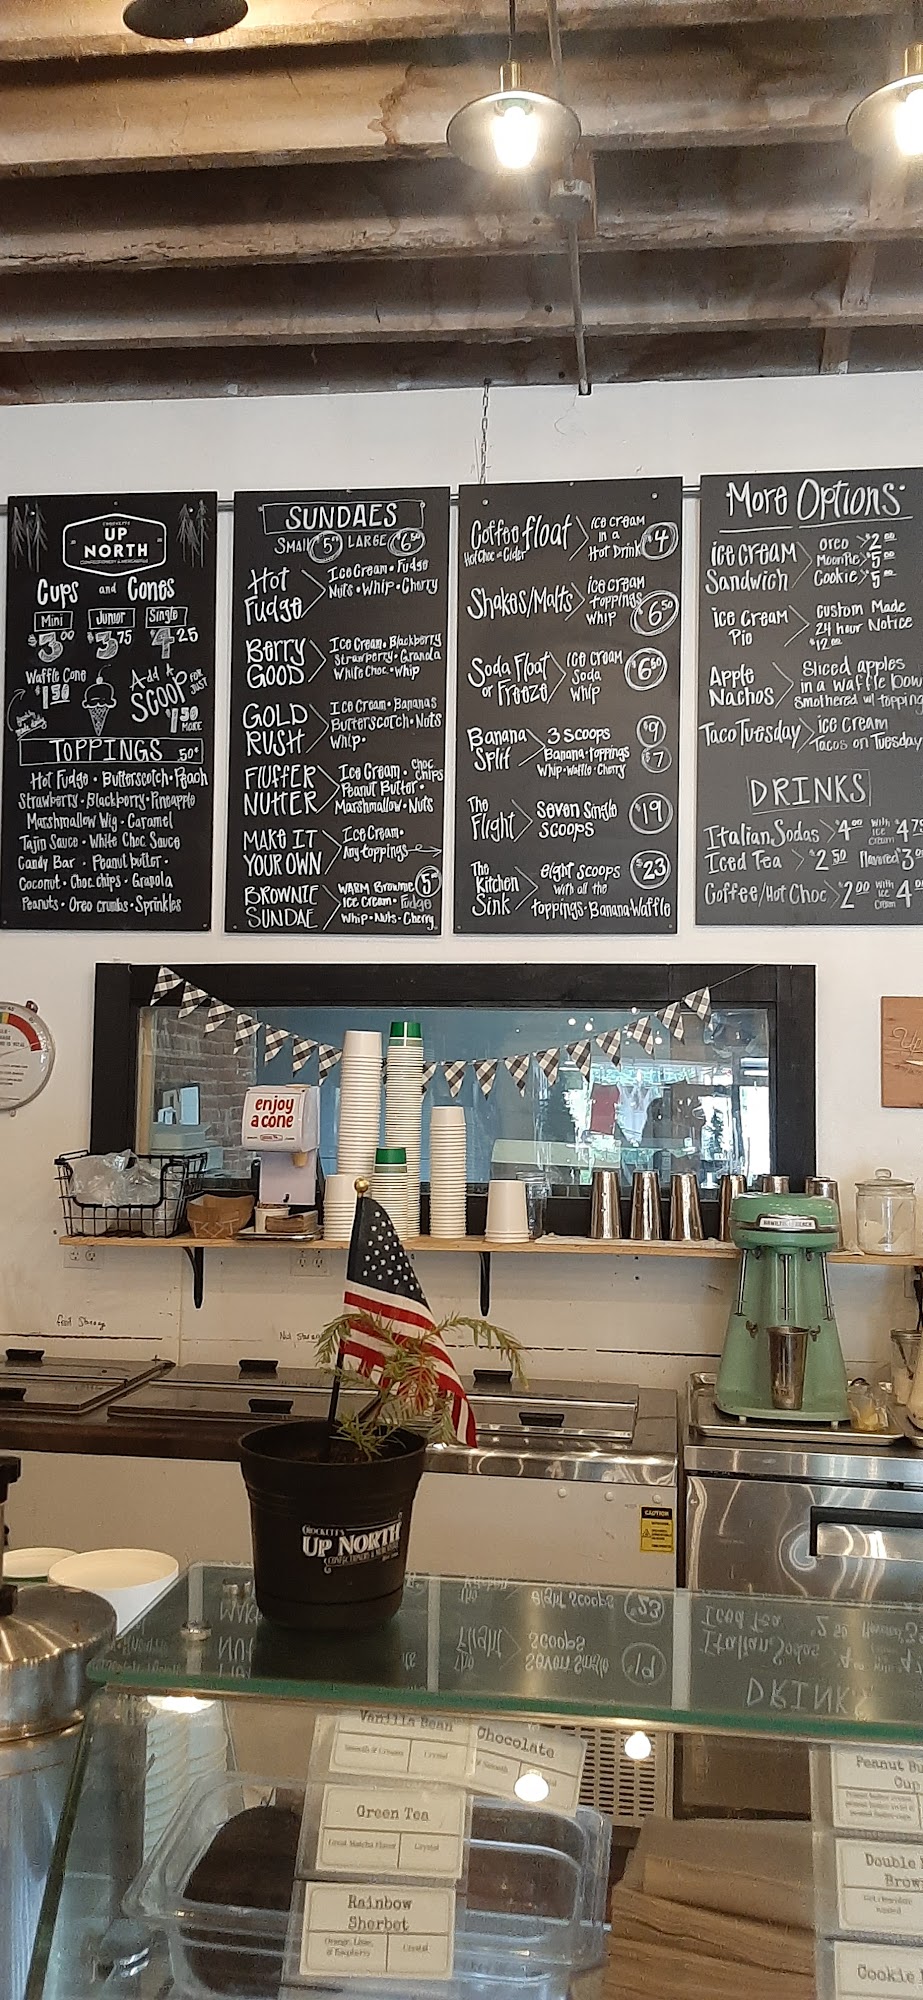 CROCKETT'S
UP
NORTH
CONFECTIONERY & MERCANTILE
Cups and Cones
Mini Junior Single
$3.00 $3.75 $4.25
Waffle Cone
$1.50
Add A
SCOOP FOR
JUST
$1.50
MORE
TOPPINGS .50¢
Hot Fudge • Butterscotch • Peach
Strawberry • Blackberry • Pineapple
Marshmallow Wig • Caramel
Tajin Sauce • White Choc Sauce
Candy Bar • Peanut butter •
Coconut • Choc. chips • Granola
Peanuts • Oreo crumbs • Sprinkles
SUNDAES
SMALL LARGE
Hot
Fudge
Ice Cream • Fudge
Nuts • Whip • Cherry
BERRY
GOOD
Ice Cream • Blackberry
Strawberry • Granola
White Choc • Whip
GOLD
RUSH
Ice Cream • Bananas
Butterscotch • Nuts
Whip •
FLUFFER
NUTTER
Ice Cream • choc chips
Peanut Butter •
Marshmallow • Nuts
MAKE IT
YOUR OWN
Ice Cream •
Any toppings
BROWNIE
SUNDAE
WARM Brownie
Ice Cream • Fudge
Whip • Nuts • Cherry
Coffee float
Hot Choc or Cider
ice cream
in a
Hot Drink
$4
Shakes/Malts
ice cream
toppings
whip
$6.50
Soda Float
or Freeze
ice cream
Soda
whip
Banana
Split
3 scoops
Banana • toppings
Whip • Waffle • Cherry
$9
$7
The
Flight
Seven Single
Scoops
$19
The
Kitchen
Sink
eight scoops
with all the
toppings • Banana • Waffle
$23
More Options
ice cream
Sandwich
Oreo $2.00
MoonPie $5.00
Cookie $5.00
Ice Cream
Pie
Custom Made
24 hour Notice
$12.00
Apple
Nachos
Sliced apples
in a waffle bow
smothered w/ topping
Taco Tuesday
ice cream
Tacos on Tuesday
DRINKS
Italian Sodas $4.00 With Ice Cream $4.75
Iced Tea $2.50 Flavored $3.0
Coffee/Hot Choc $2.00 with Ice Cream $4.0
enjoy
a cone
HAMILTON BEACH
CAUTION
CROCKETT'S
UP NORTH
CONFECTIONERY & MERCANTILE
Vanilla Bean
Smooth & Creamy Crystal
Chocolate
Green Tea
Great Matcha Flavor Crystal
Rainbow
Sherbet
Orange, Lime,
& Raspberry Crystal
Peanut Bu
Cup
Double
Brow
Cookie